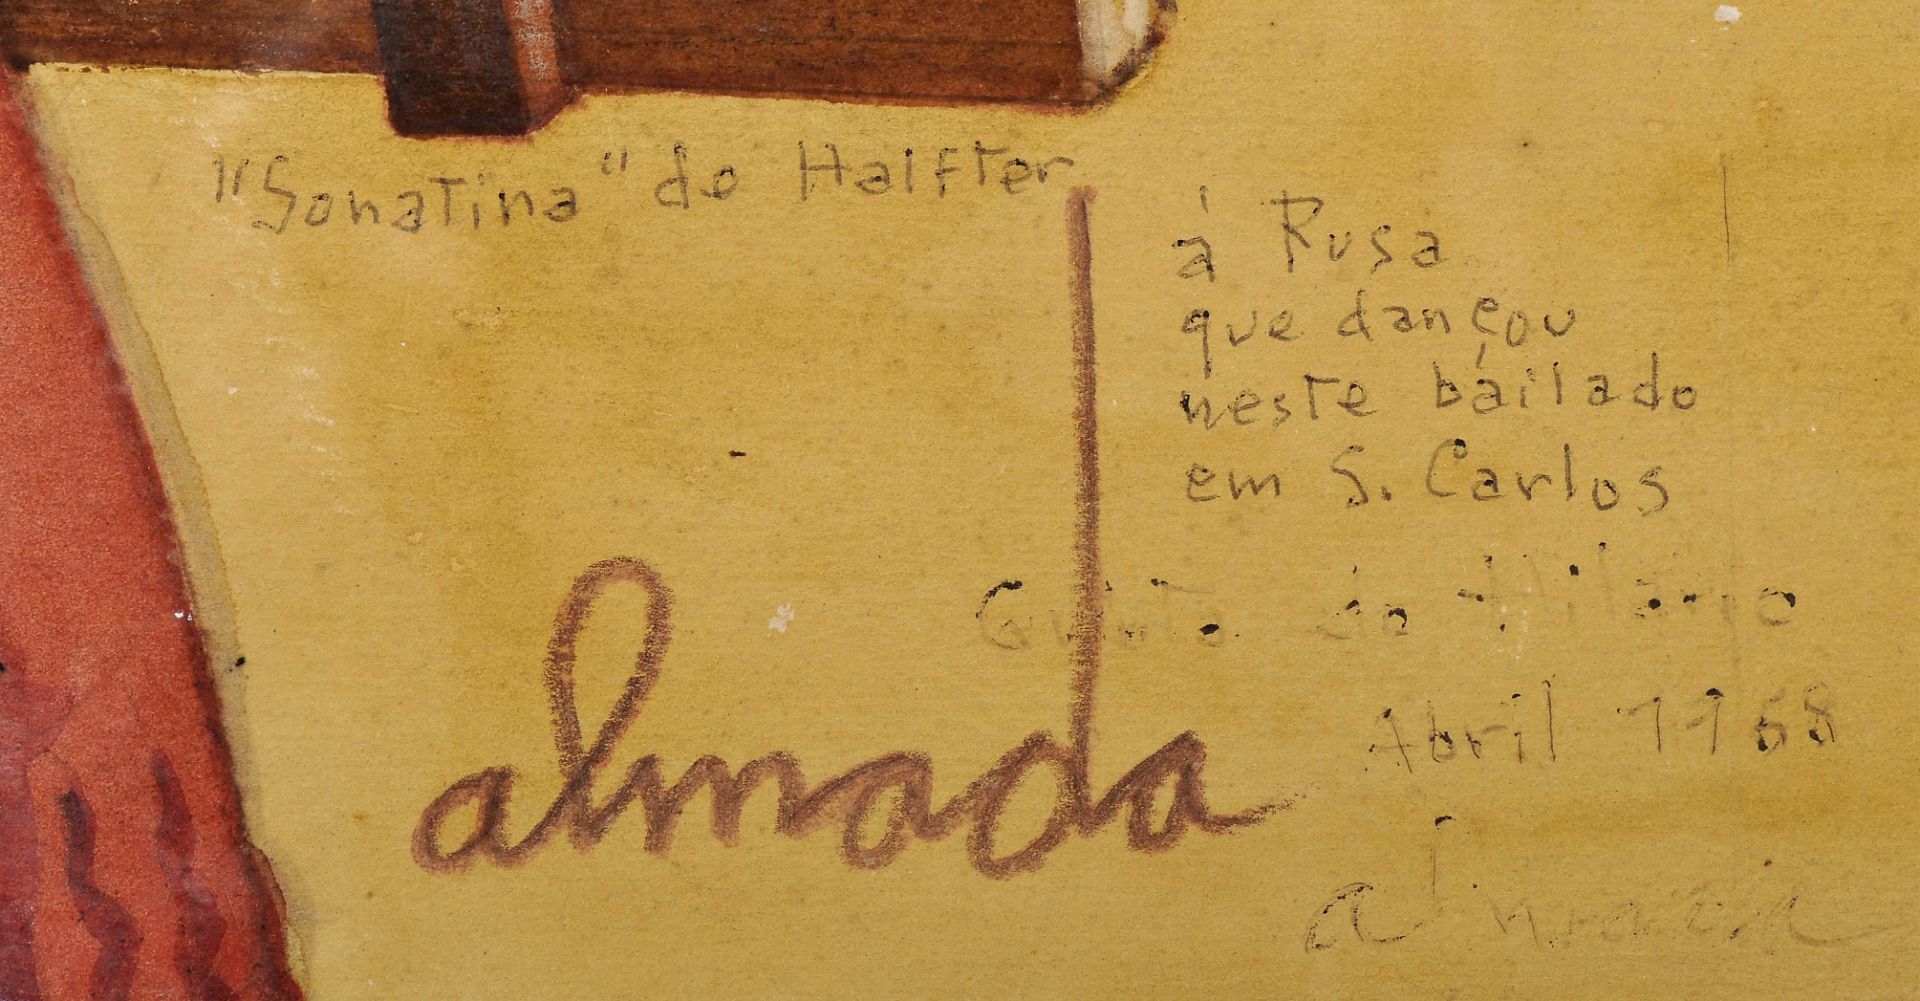 "Sonatina" de Halfter
à Rusa
que dançou
neste bailado
em S. Carlos
Quinta do Hilário
Abril 1968
almada
almada